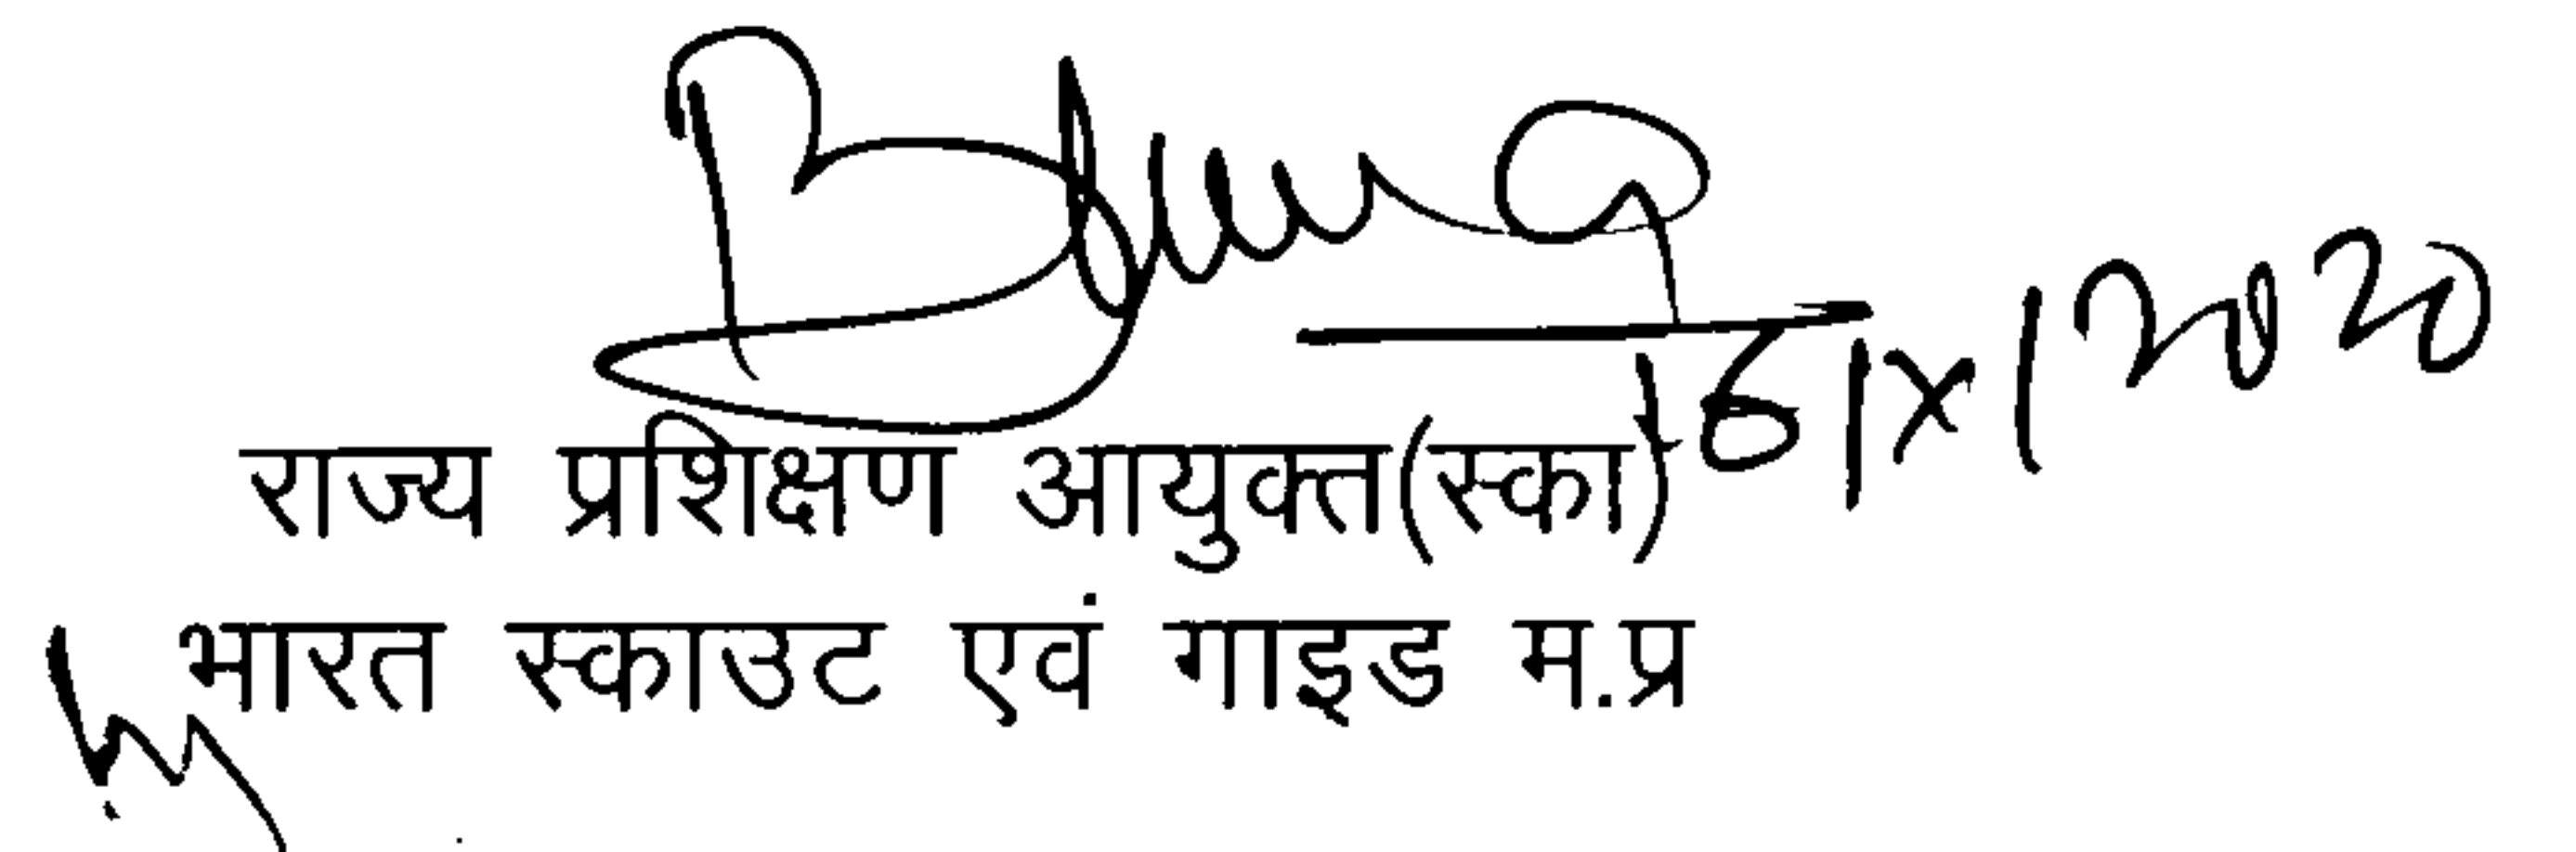 16/x/2020
राज्य प्रशिक्षण आयुक्त(स्का)
भारत स्काउट एवं गाइड म.प्र